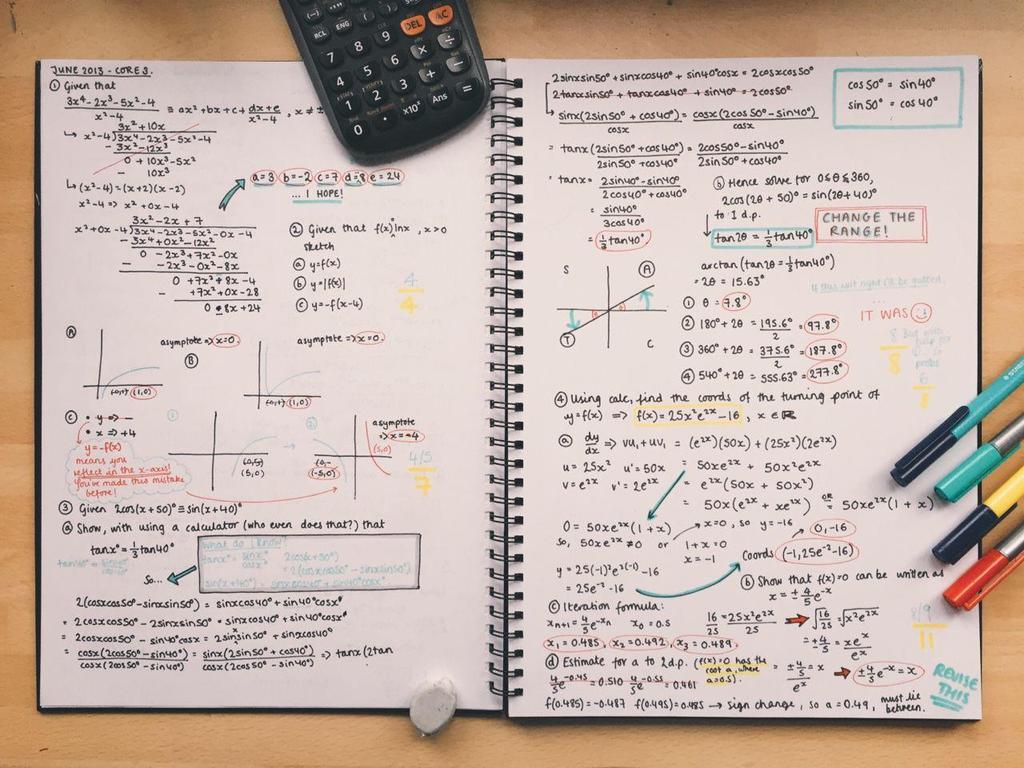 JUNE 2013 - CORE 3.
① Given that
3x⁴-2x³-5x²-4 / x²-4 ≡ ax²+bx+c+ dx+e / x²-4 , x ≠ ±
3x²+10x
↳ x²-4 | 3x⁴-2x³-5x²-4
- 3x³-12x²
0 +10x³-5x²
- 10x³
↳ (x²-4)=(x+2)(x-2)
x²-4 => x²+0x-4
3x²-2x+7
x²+0x-4 | 3x⁴-2x³-5x²-0x-4
- 3x⁴+0x³-12x²
0 -2x³+7x²-0x
- -2x³-0x²-8x
0 +7x²+8x-4
- +7x²+0x-28
0 8x+24
a=3 b=-2 c=7 d=8 e=24
... I HOPE!
② Given that f(x) lnx , x>0
sketch
ⓐ y=f(x)
ⓑ y=|f(x)|
ⓒ y=-f(x-4)
4/4
Ⓐ
asymptote => x=0.
(1,0)
Ⓑ
asymptote => x=0.
(1,0)
Ⓒ • y => -
• x => +4
y=-f(x)
means you
reflect in the x-axis!
You've made this mistake
before!
①
(5,0)
②
(-5,0)
asymptote
=> x=-4
(5,0)
4/5
7
③ Given 2cos(x+50°)≡sin(x+40°)
ⓐ Show, with using a calculator (who even does that?) that
tanx°=⅓tan40°
So...
What do I know?
tanx° = sinx°/cosx°
2cos(x+50°)
sin(x+40°) = sinxcos40°+sin40°cosx
2(cosxcos50°-sinxsin50°) = sinxcos40°+sin40°cosx°
= 2cosxcos50°-2sinxsin50° = sinxcos40°+sin40°cosx
= 2cosxcos50°-sin40°cosx = 2sinxsin50°+sinxcos40°
= cosx(2cos50°-sin40°) / cosx(2cos50°-sin40°) = sinx(2sin50°+cos40°) / cosx(2cos50°-sin40°) => tanx(2tan
RCL ENG
DEL AC
7 8 9
4 5 6 × ÷
1 2 3 + -
0 • ×10ˣ Ans =
2sinxsin50°+sinxcos40°+sin40°cosx = 2cosxcos50°
2tanxsin50°+tanxcos40°+sin40°=2cos50°
cos50°=sin40°
sin50°=cos40°
↳ sinx(2sin50°+cos40°) / cosx = cosx(2cos50°-sin40°) / cosx
= tanx(2sin50°+cos40°) / 2sin50°+cos40° = 2cos50°-sin40° / 2sin50°+cos40°
= tanx= 2sin40°-sin40° / 2cos40°+cos40°
= sin40° / 3cos40°
= ⅓tan40°
ⓑ Hence solve for 0≤θ≤360,
2cos(2θ+50)°=sin(2θ+40°)
↓ to 1 d.p.
CHANGE THE
RANGE!
tan2θ=⅓tan40°
S
A
T
C
arctan(tan2θ=⅓tan40°)
= 2θ=15.63°
If this isnt right I'll be gutted.
...
IT WAS ☺
① θ=7.8°
② 180°+2θ = 195.6°/2 = 97.8°
③ 360°+2θ = 375.6°/2 = 187.8°
④ 540°+2θ = 555.63° = 277.8°
8/8
6/8
④ Using calc, find the coords of the turning point of
y=f(x) => f(x)=25x²e²ˣ-16 , x ∈ ℝ
ⓐ dy/dx => vu₁+uv₁ = (e²ˣ)(50x)+(25x²)(2e²ˣ)
u=25x² u'=50x = 50xe²ˣ+50x²e²ˣ
v=e²ˣ v'=2e²ˣ = e²ˣ(50x+50x²)
= 50x(e²ˣ+xe²ˣ) OR = 50xe²ˣ(1+x)
0=50xe²ˣ(1+x) x=0, so y=-16
So, 50xe²ˣ≠0 or 1+x=0
x=-1
Coords 0,-16
(-1,25e⁻²-16)
y=25(-1)²e²⁽⁻¹⁾-16
= 25e⁻²-16
ⓑ Show that f(x)=0 can be written as
x=±⅘e⁻ˣ
ⓒ Iteration formula:
xₙ₊₁=⅘e⁻ˣⁿ x₀=0.5
x₁=0.485, x₂=0.492, x₃=0.489
16/25 = 25x²e²ˣ/25 → √16/25=√x²e²ˣ
=±4/5=xeˣ/eˣ
= ±4/5 / eˣ = x → ±⅘e⁻ˣ=x
8/9
11
ⓓ Estimate for a to 2d.p. (f(x)=0 has the
root a, where
a=0.5).
⅘e⁻⁰·⁴⁵=0.510 ⅘e⁻⁰·⁵⁵=0.461
f(0.485)=-0.487 f(0.495)=0.485 → sign change, so a=0.49, must lie
between.
REVISE
THIS